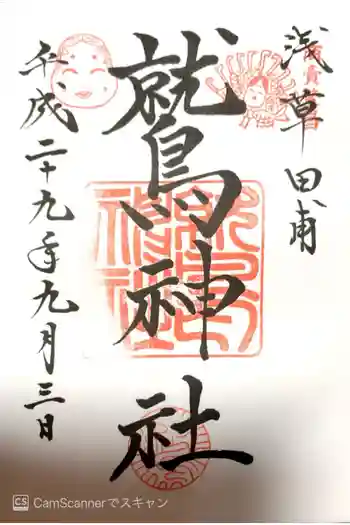 浅草田甫
鷲神社
平成二十九年九月三日
CS CamScannerでスキャン